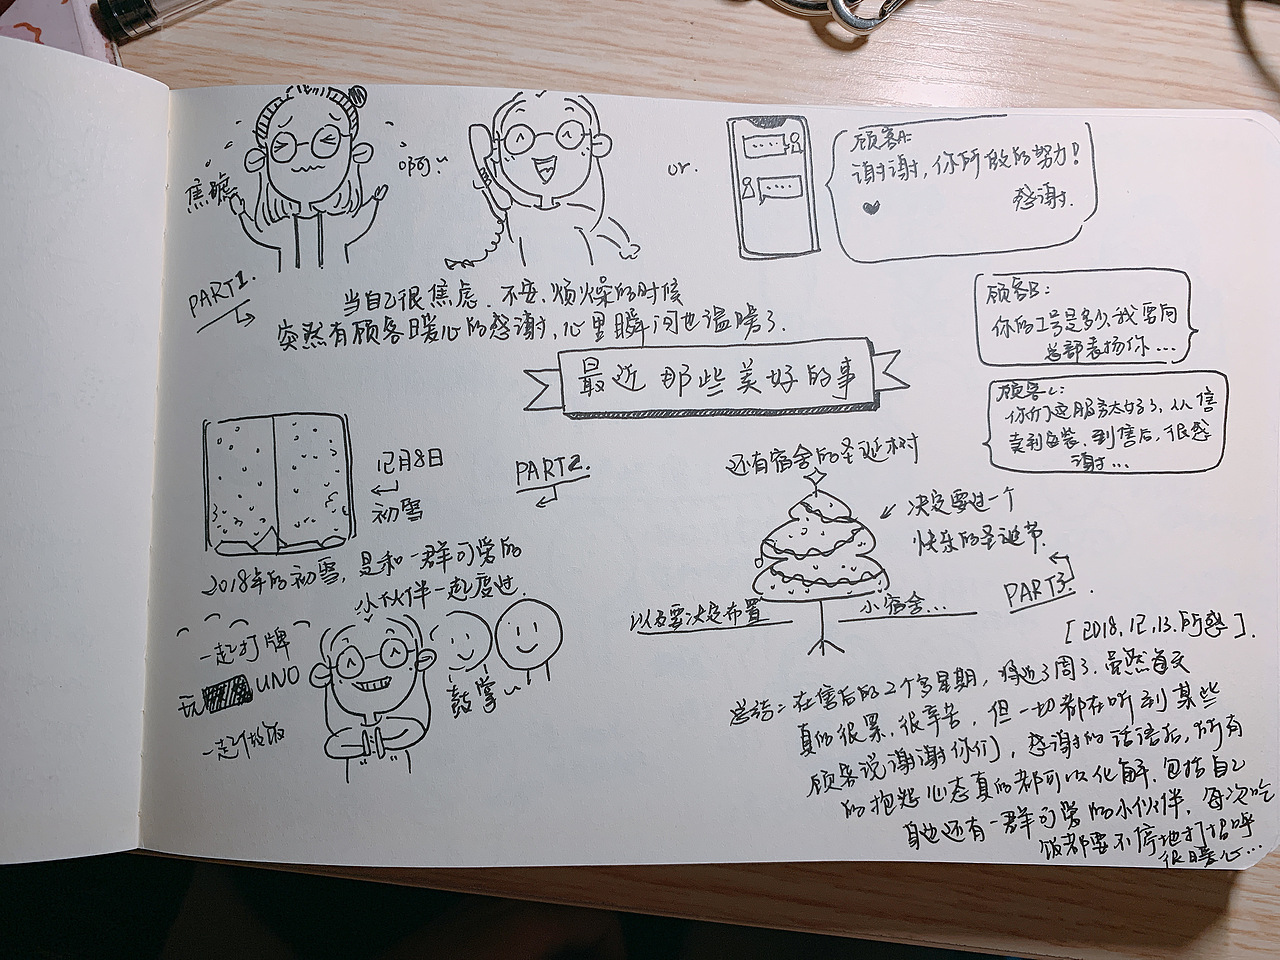 焦虑
啊~
or.
顾客A:
谢谢,你所做的努力!
感谢.
PART1.
当自己很焦虑.不安.烦燥的时候
突然有顾客暖心的感谢,心里瞬间也温暖了.
顾客B:
你的工号是多少,我要向
总部表扬你...
顾客C:
你们这服务太好了,从售
卖到安装.到售后,很感
谢...
最近那些美好的事
12月8日
初雪
PART2.
2018年的初雪,是和一群可爱的
小伙伴一起度过.
一起打牌
玩 UNO
一起做饭
鼓掌~
还有宿舍的圣诞树
决定要过一个
快乐的圣诞节.
PART3.
以及要决定布置
小宿舍...
[2018.12.13.所感].
总结:在售后的2个多星期,将近3周了.虽然每天
真的很累,很辛苦,但一切都在听到某些
顾客说谢谢你们,感谢的话语后,所有
的抱怨心态真的都可以化解.包括自己
身边还有一群可爱的小伙伴,每次吃
饭都要不停地打招呼
很暖心...